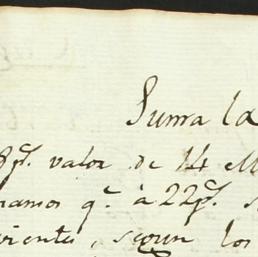 Suma la
8p.s valor de 14 M
ramos q.e à 22p.s
viente, segun los